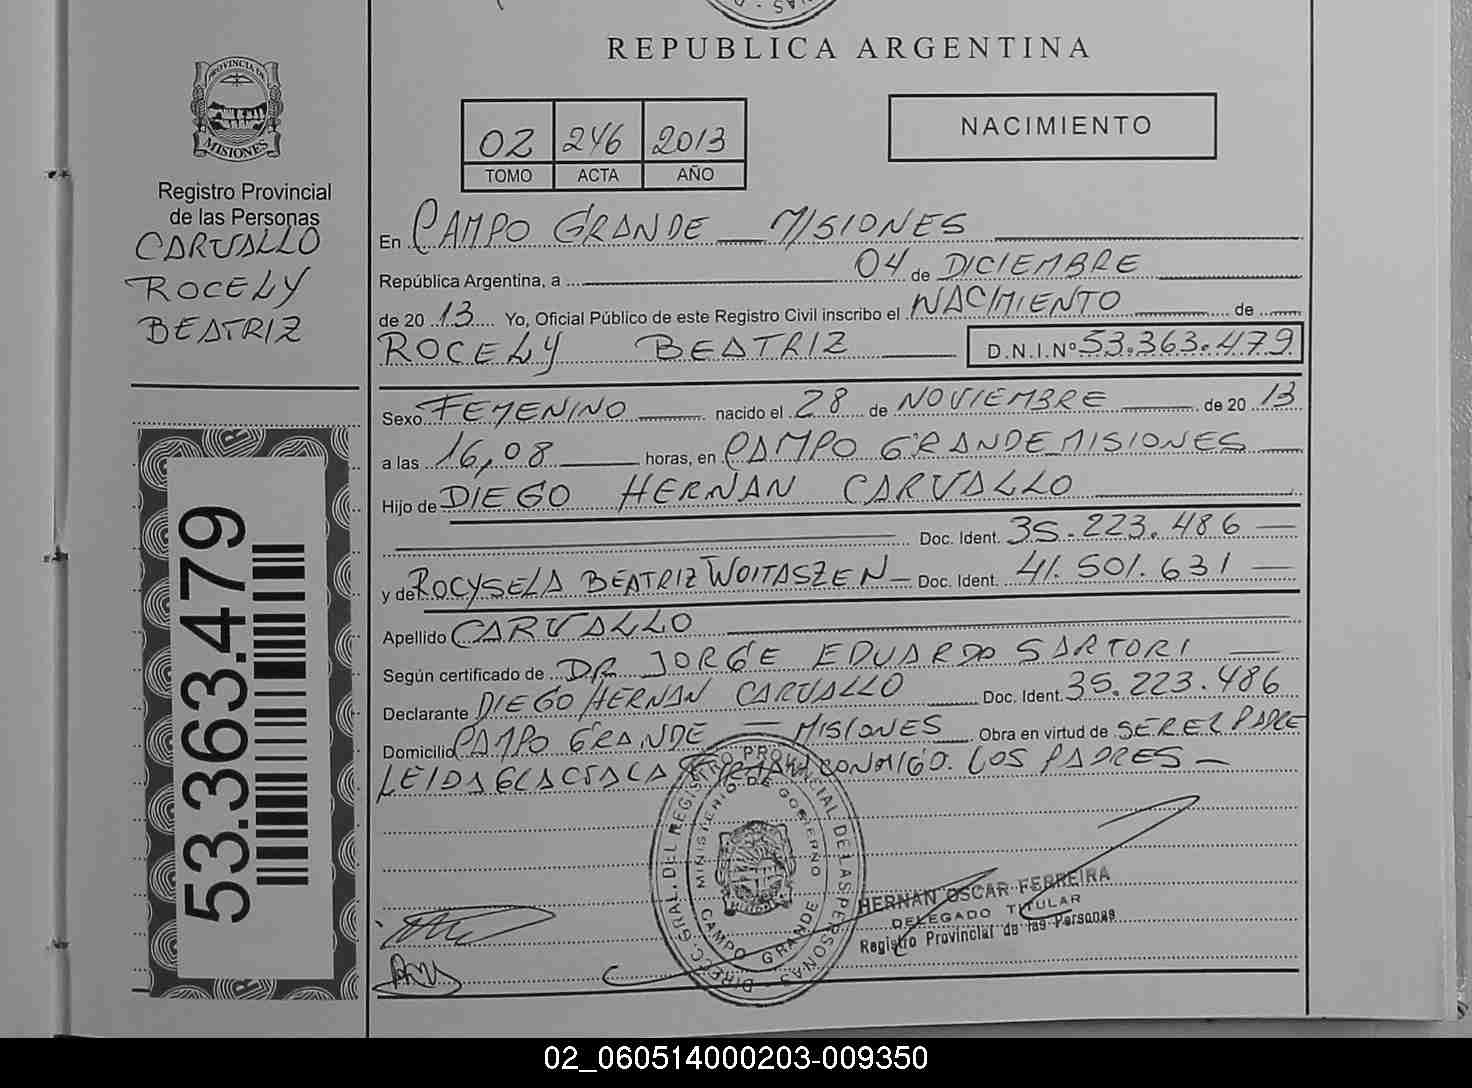 REPUBLICA ARGENTINA
PROVINCIA DE
MISIONES
Registro Provincial
de las Personas
CARVALLO
ROCELY
BEATRIZ
53.363.479
02 246 2013
TOMO ACTA AÑO
NACIMIENTO
En CAMPO GRANDE MISIONES
República Argentina, a 04 de DICIEMBRE
de 20 13 Yo, Oficial Público de este Registro Civil inscribo el NACIMIENTO de
ROCELY BEATRIZ D.N.I.Nº 53.363.479
Sexo FEMENINO nacido el 28 de NOVIEMBRE de 20 13
a las 16,08 horas, en CAMPO GRANDE MISIONES
Hijo de DIEGO HERNAN CARVALLO
Doc. Ident. 35.223.486
y de ROCYSELA BEATRIZ WOITASZEN Doc. Ident. 41.501.631
Apellido CARVALLO
Según certificado de DR. JORGE EDUARDO SARTORI
Declarante DIEGO HERNAN CARVALLO Doc. Ident. 35.223.486
Domicilio CAMPO GRANDE - MISIONES Obra en virtud de SER EL PADRE
LEIDA EL ACTA LA FIRMAN CONMIGO. LOS PADRES
DIRECC. GRAL. DEL REGISTRO PROVINCIAL DE LAS PERSONAS
MINISTERIO DE GOBIERNO
CAMPO GRANDE
HERNAN OSCAR FERREIRA
DELEGADO TITULAR
Registro Provincial de las Personas
02_060514000203-009350